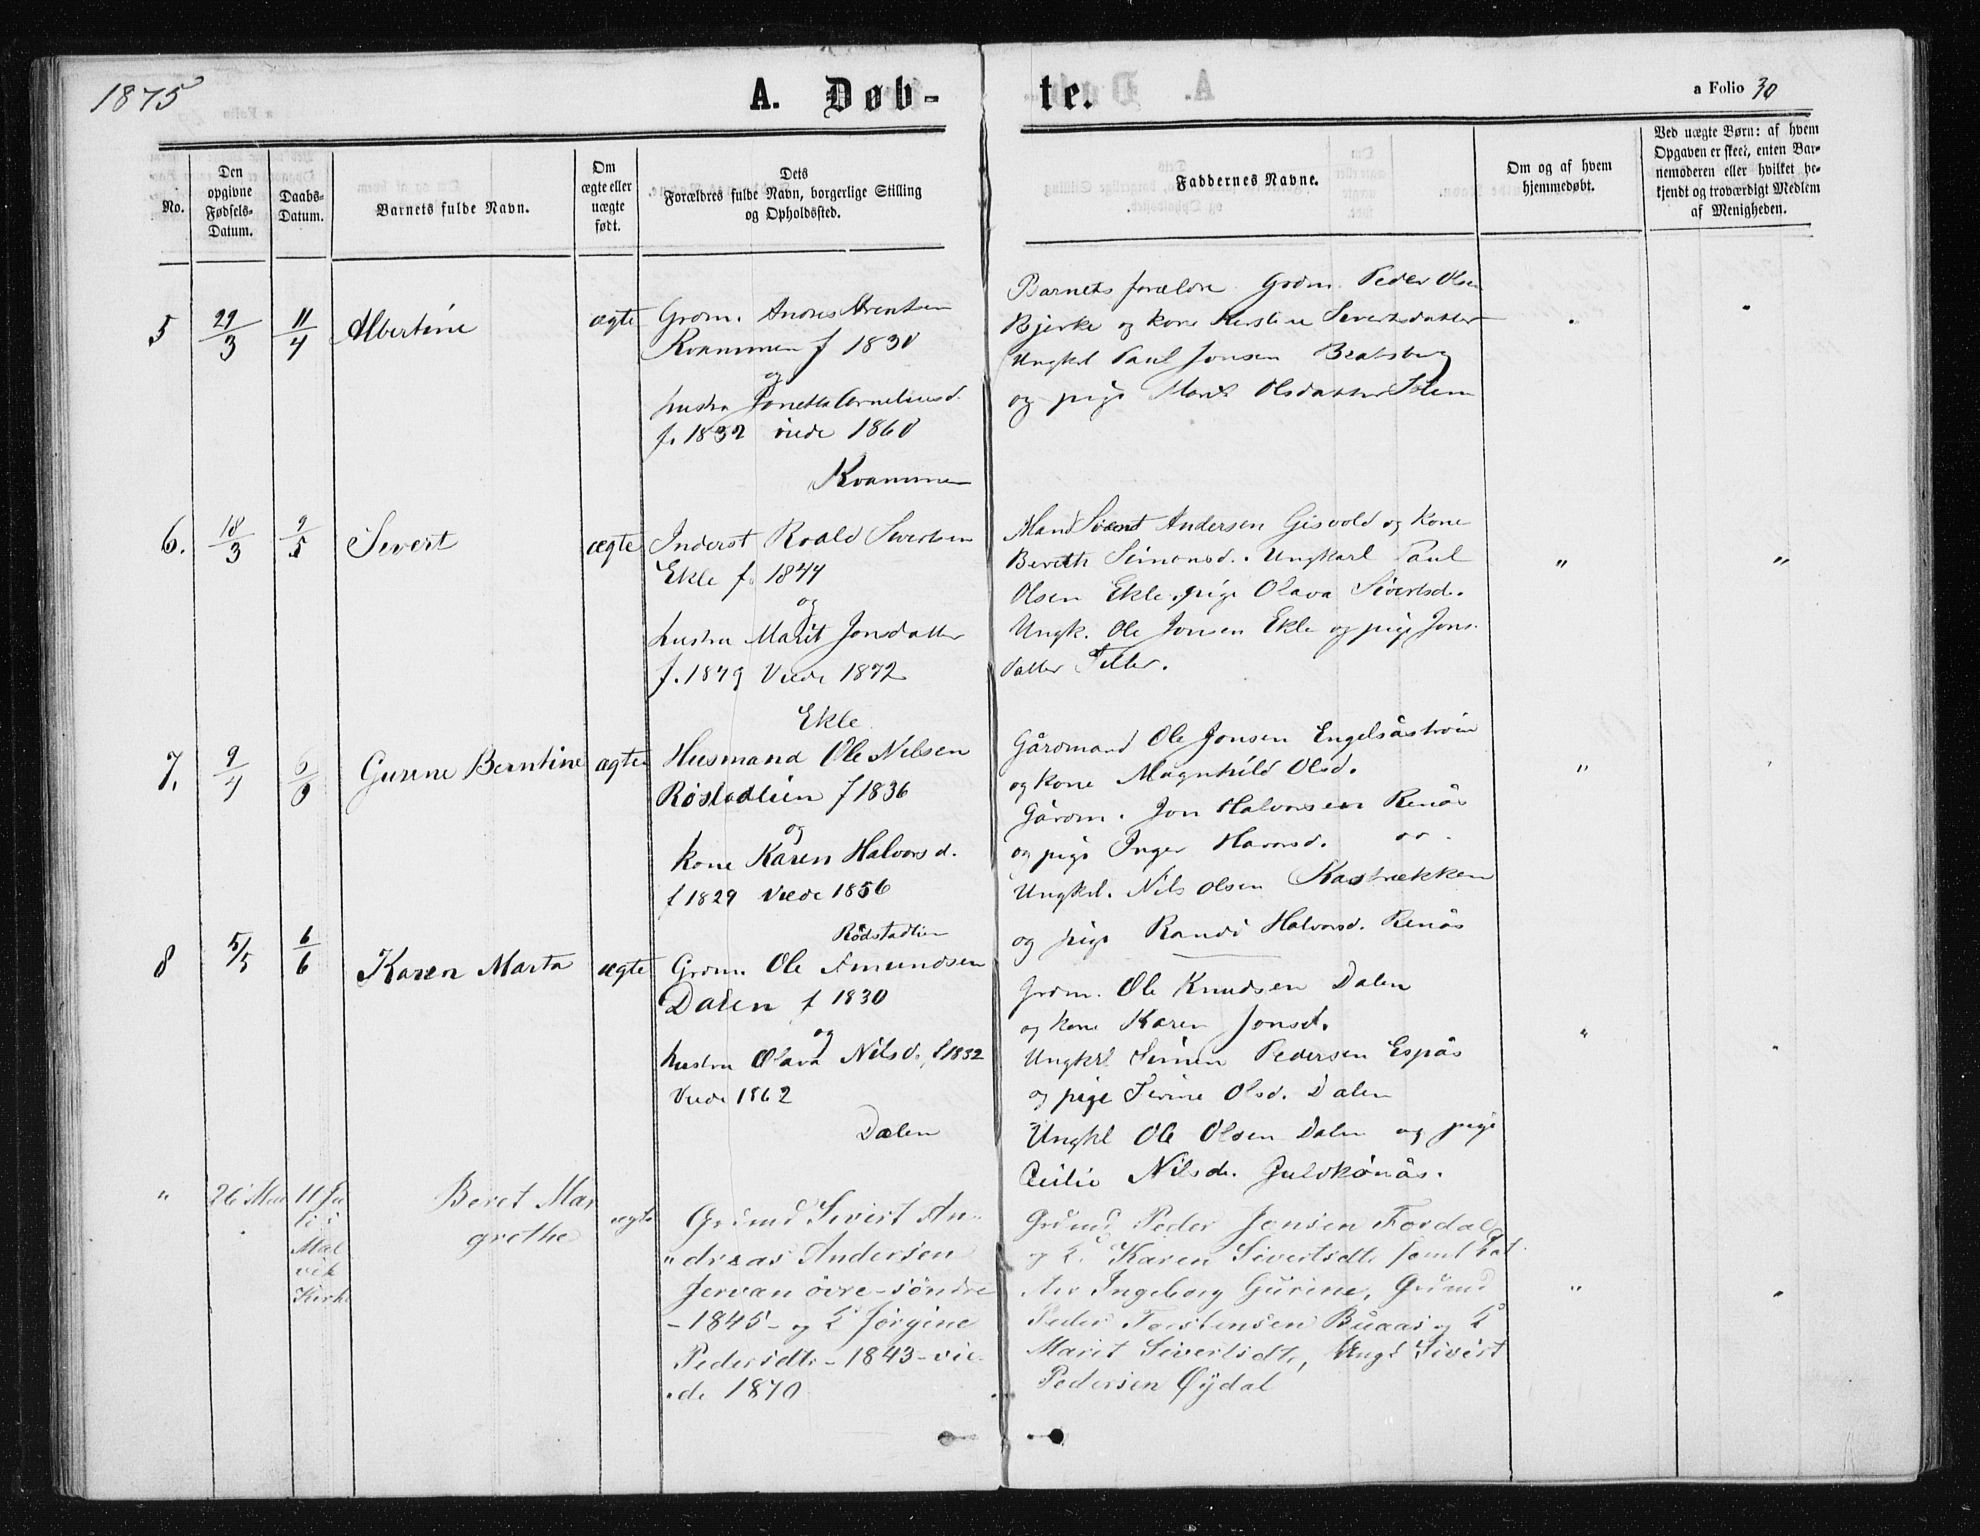 1875
A. Døb-
te.
a Folio 30
No.
Den
opgivne
Fødsels-
Datum.
Daabs-
Datum.
Barnets fulde Navn.
Om
ægte eller
uægte
født.
Dets
Forældres fulde Navn, borgerlige Stilling
og Opholdssted.
Faddernes Navne.
Om og af hvem
hjemmedøbt.
Ved uægte Børn: af hvem
Opgaven er skeet, enten Bar-
nemoderen eller hvilket be-
kjendt og troværdigt Medlem
af Menigheden.
5
29/3
11/4
Albertine
ægte
Grdm. Anders Arentsen
Kvammen f 1830
og
hustru Jonetta Corneliusd.
f. 1832 viede 1860
Kvammen
Barnets forældre Grdm. Peder Olsen
Bjerke og kone Kerstine Sivertsdatter
Ungkl Paul Jonsen Bratsberg
og pige Marit Olsdatter Stem
6.
18/3
9/5
Severt
ægte
Inderst Roald Sivertsen
Ekle f. 1844
og
hustru Marit Jonsdatter
f. 1849 Viede 1872
Ekle
Mand Sivert Andersen Gisvold og kone
Bereth Simonsd. Ungkarl Paul
Olsen Ekle, pige Olava Sivertsd.
Ungk. Ole Jonsen Ekle og pige Jons-
datter Tiller.
" "
7.
9/4
Gurine Berntine
ægte
Husmand Ole Nilsen
Røstadlien f 1836
og
kone Karen Halvorsd.
f 1829 Viede 1856
Rødstadlien
Gårdmand Ole Jonsen Engelsåstrøen
og kone Magnhild Olsd.
Gårdm. Jon Halvorsen Renås
og pige Inger Havorsd. do -
Ungkl. Nils Olsen Kastrækken
og pige Randi Halvorsd. Renås
"
8
5/5
6/6
Karen Marta
ægte
Grdm. Ole Amundsen
Dalen f 1830
og
hustru Olava Nilsd. f 1832
Viede 1862
Dalen
Grdm. Ole Knudsen Dalen
og kone Karen Jonsd.
Ungkrl Simen Pedersen Espås
og pige Sirine Olsd. Dalen
Ungkl Ole Olsen Dalen og pige
Cecilie Nilsd. Juldkønås.
" "
"
26 Mai
11 Ju
li i
Mal
vik
Kirke
Beret Mar
grethe
ægte
Grdmd Sivert An-
dreas Andersen
Jervan øvre - søndre
- 1845 - og K Jørgine
Pedersdtr - 1843 - vie-
de 1870
Grdmd Peder Jensen Fordal
og K. Karen Sivertsdtr samt Dat
ter Ingeborg Gurine, Grdmd
Peder Torstensen Buaas og K
Marit Sivertsdtr, Ungk Sivert
Pedersen Øydal
" "